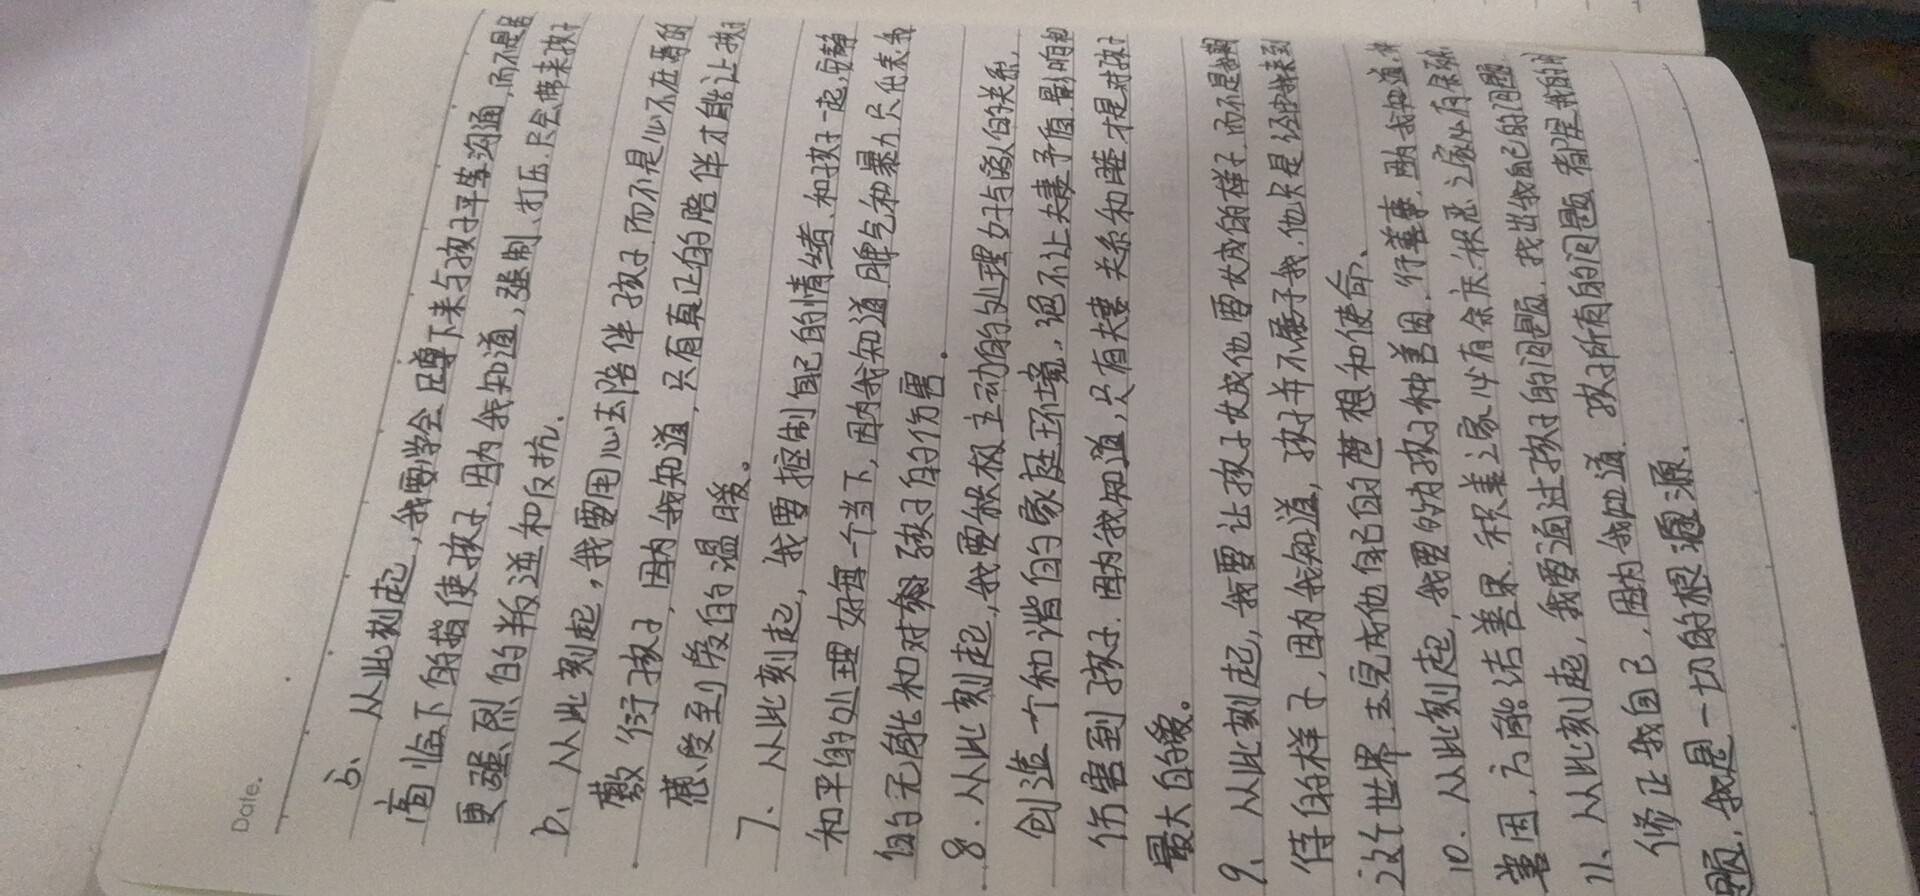 Date.
5、从此刻起,我要学会蹲下来与孩子平等沟通,而不是居
高临下的指使孩子.因为我知道,强制、打压.只会带来孩子
更强烈的叛逆和反抗.
6、从此刻起,我要用心去陪伴孩子.而不是心不在焉的
敷衍孩子,因为我知道,只有真正的陪伴才能让孩子
感受到爱的温暖。
7、从此刻起,我要控制自己的情绪.和孩子一起,安静
和平的处理好每一个当下,因为我知道.脾气和暴力只代表我
的无能和对孩子的伤害.
8、从此刻起,我要积极主动的处理好与家人的关系,
创造一个和谐的家庭环境,绝不让夫妻矛盾影响和
伤害到孩子.因为我知道,只有夫妻关系和睦才是对孩子
最大的爱。
9、从此刻起,我要让孩子成为他要成的样子.而不是我期
待的样子,因为我知道,孩子并不属于我.他只是经由我来到
这个世界.去完成他自己的梦想和使命、
10、从此刻起,我要为孩子种善因.行善事.因为我知道.种
善因,方能结善果.积善之家必有余庆.积恶之家必有余殃
11、从此刻起,我要通过孩子的问题.找出我自己的问题.
修正我自己.因为我知道.孩子所有的问题都是我的问
题.我是一切的根源.